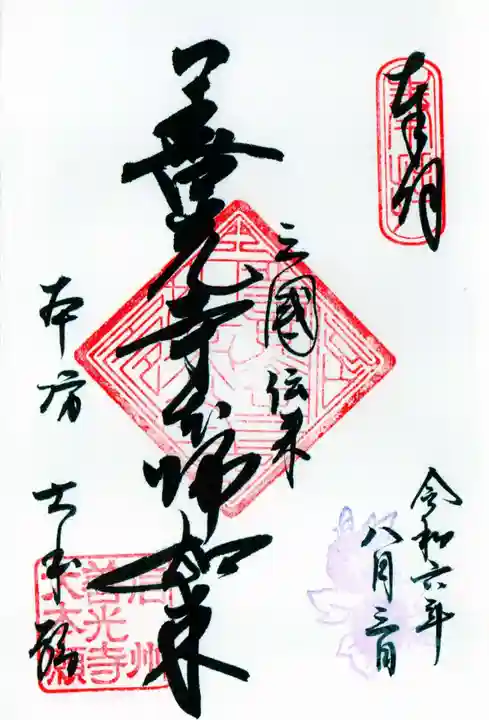 奉拝
三國伝来
善光寺本師如来
本坊 大本願
信州
善光寺
大本願
令和六年
八月三日